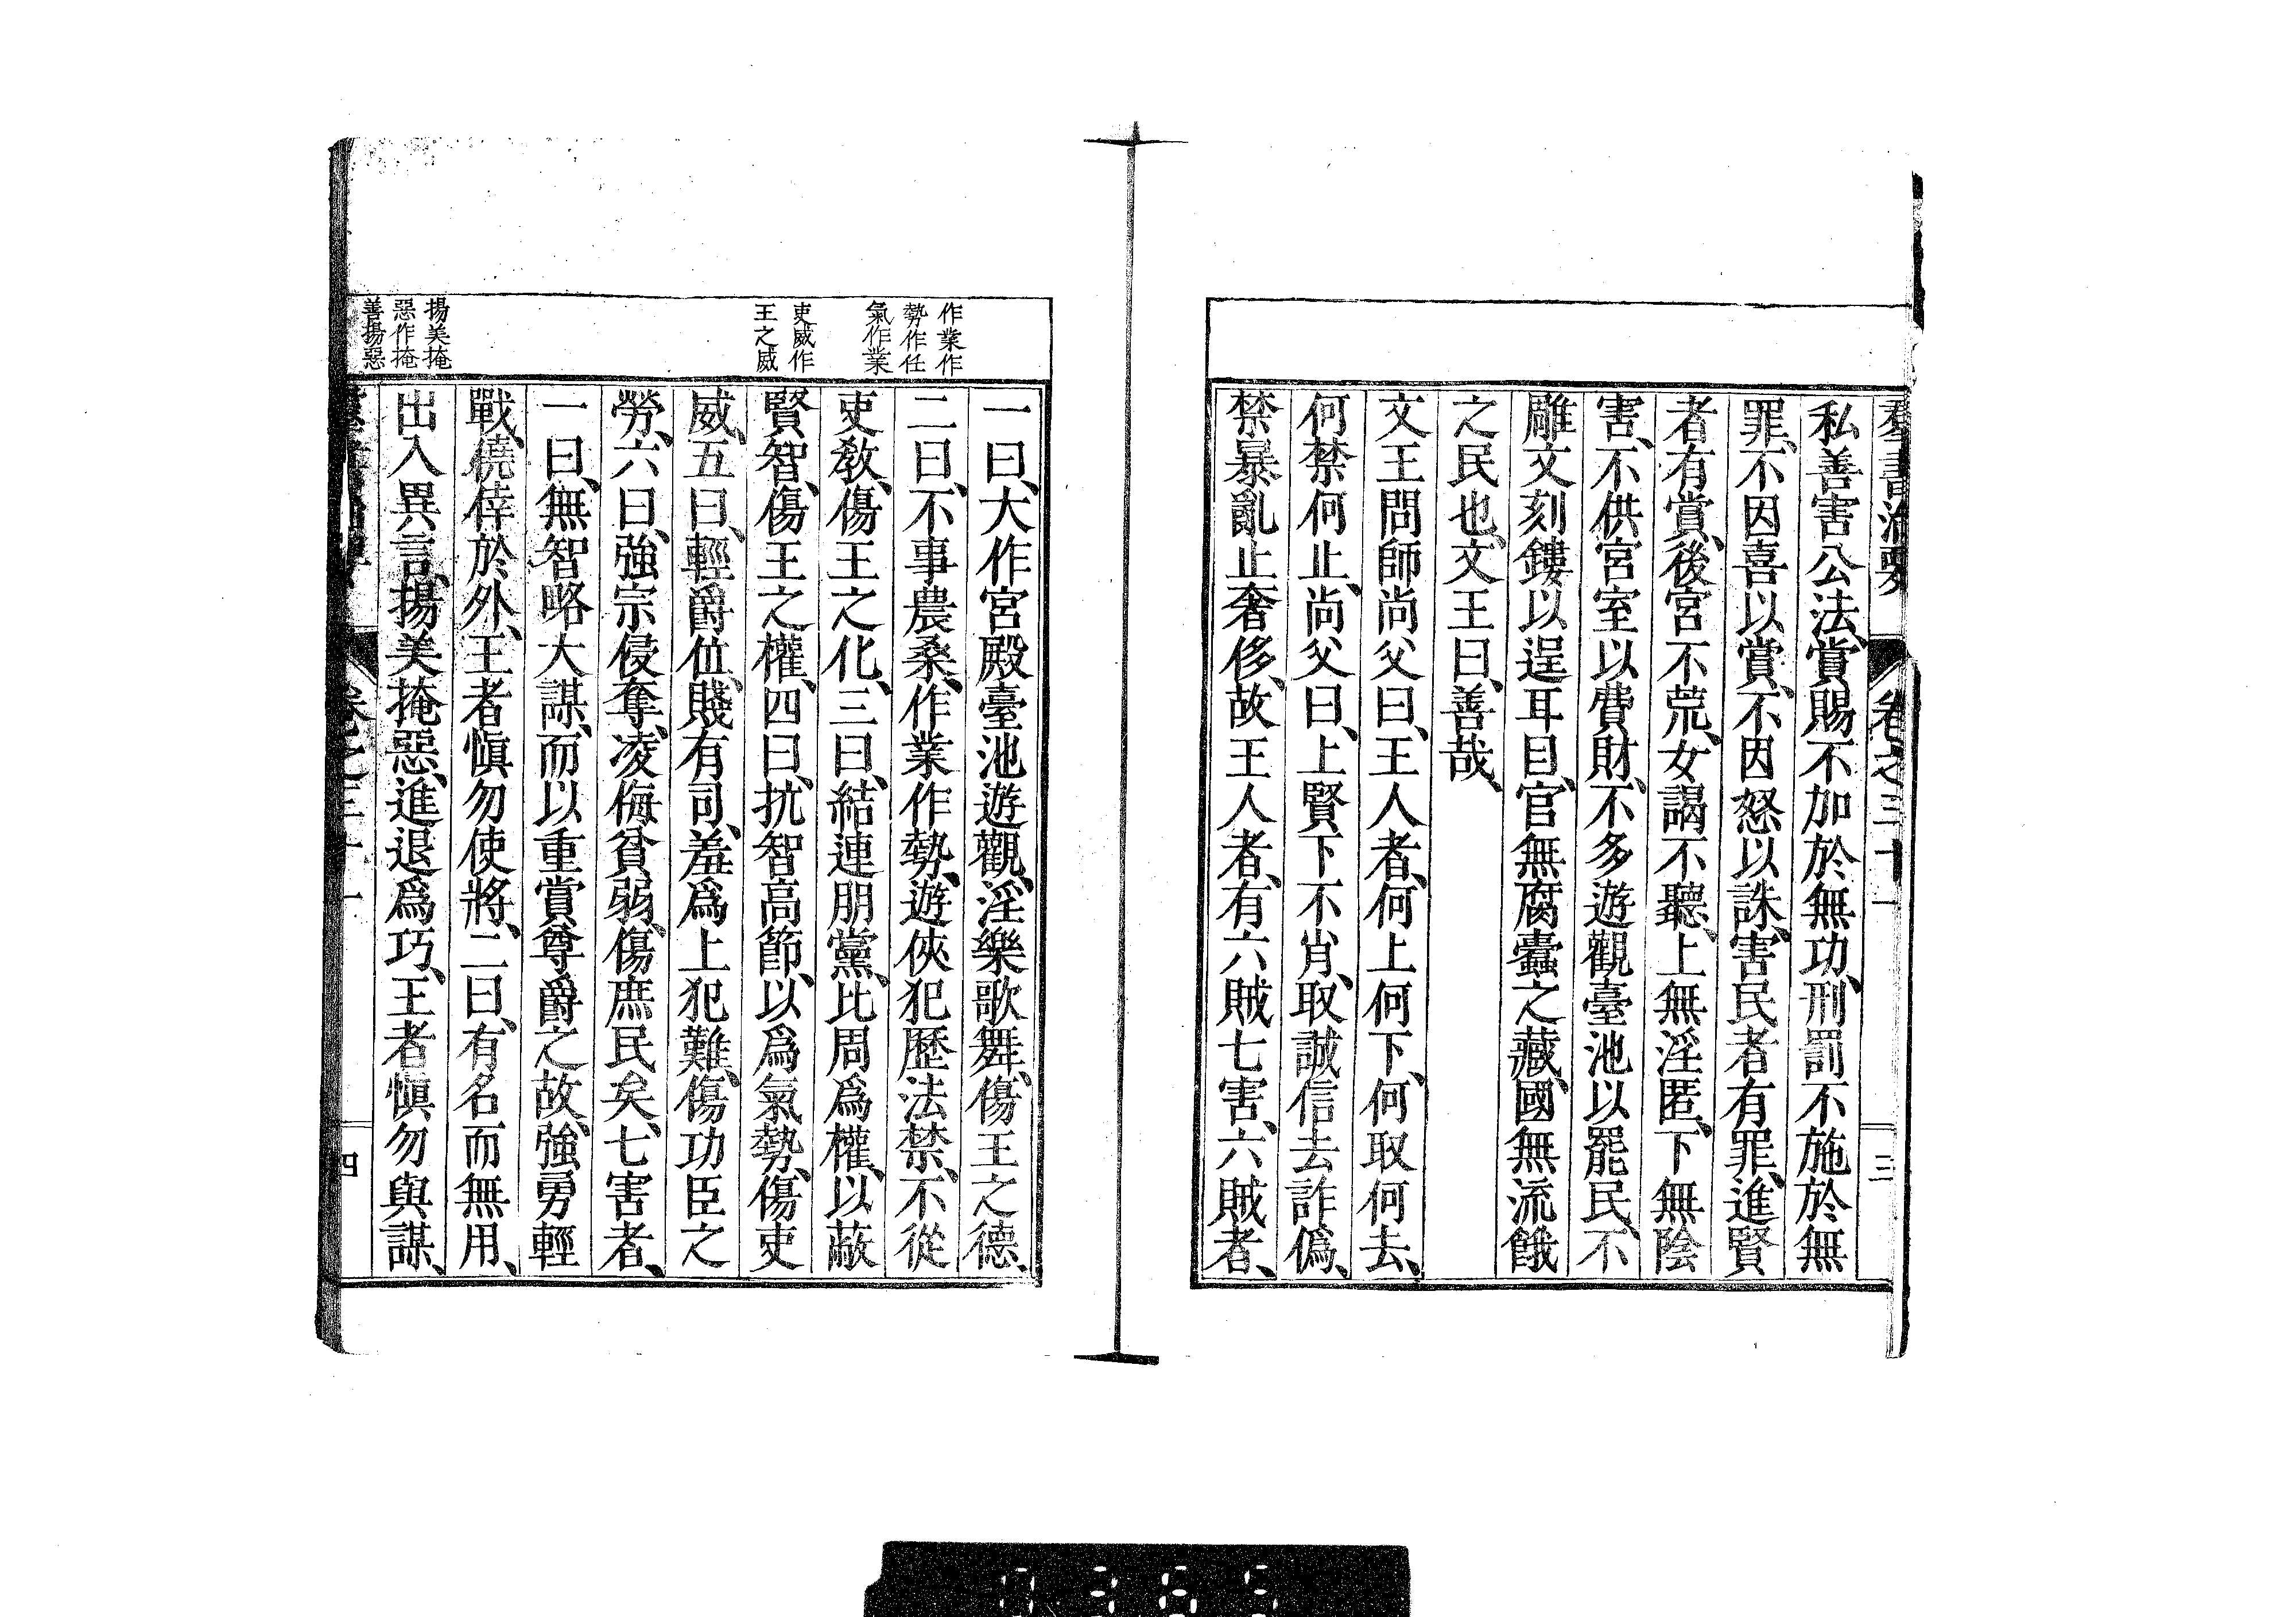 羣書治要 卷之三十一 三
私善害公法、賞賜不加於無功、刑罰不施於無
罪、不因喜以賞、不因怒以誅、害民者有罪、進賢
者有賞、後宮不荒、女謁不聽、上無淫匿、下無陰
害、不供宮室以費財、不多遊觀臺池以罷民、不
雕文刻鏤以逞耳目、官無腐蠹之藏、國無流餓
之民也、文王曰、善哉、
文王問師尚父曰、王人者、何上何下、何取何去、
何禁何止、尚父曰、上賢下不肖、取誠信去詐僞、
禁暴亂止奢侈、故王人者、有六賊七害、六賊者、
作業作
勢作任
氣作業
吏威作
王之威
揚美掩
惡作掩
善揚惡
一曰、大作宮殿臺池遊觀、淫樂歌舞、傷王之德、
二曰、不事農桑、作業作勢、遊俠犯歷法禁、不從
吏敎、傷王之化、三曰、結連朋黨、比周爲權、以蔽
賢智、傷王之權、四曰、抗智高節、以爲氣勢、傷吏
威、五曰、輕爵位、賤有司、羞爲上犯難、傷功臣之
勞、六曰、強宗侵奪、凌侮貧弱、傷庶民矣、七害者、
一曰、無智略大謀、而以重賞尊爵之故、強勇輕
戰、僥倖於外、王者愼勿使將、二曰、有名而無用、
出入異言、揚美掩惡、進退爲巧、王者愼勿與謀、
卷之三十一 四